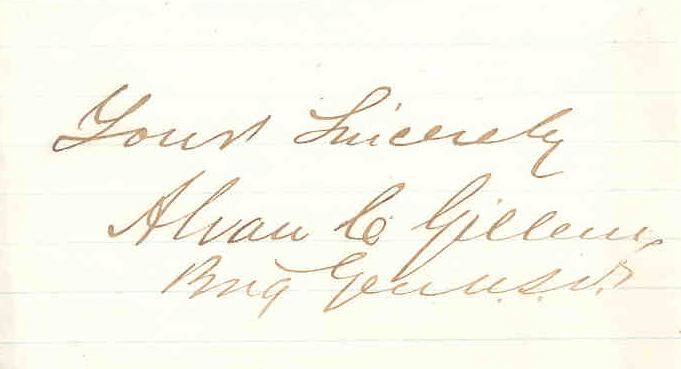 Yours Sincerely
Alvan C Gillem
Brig Gen U.S.V.